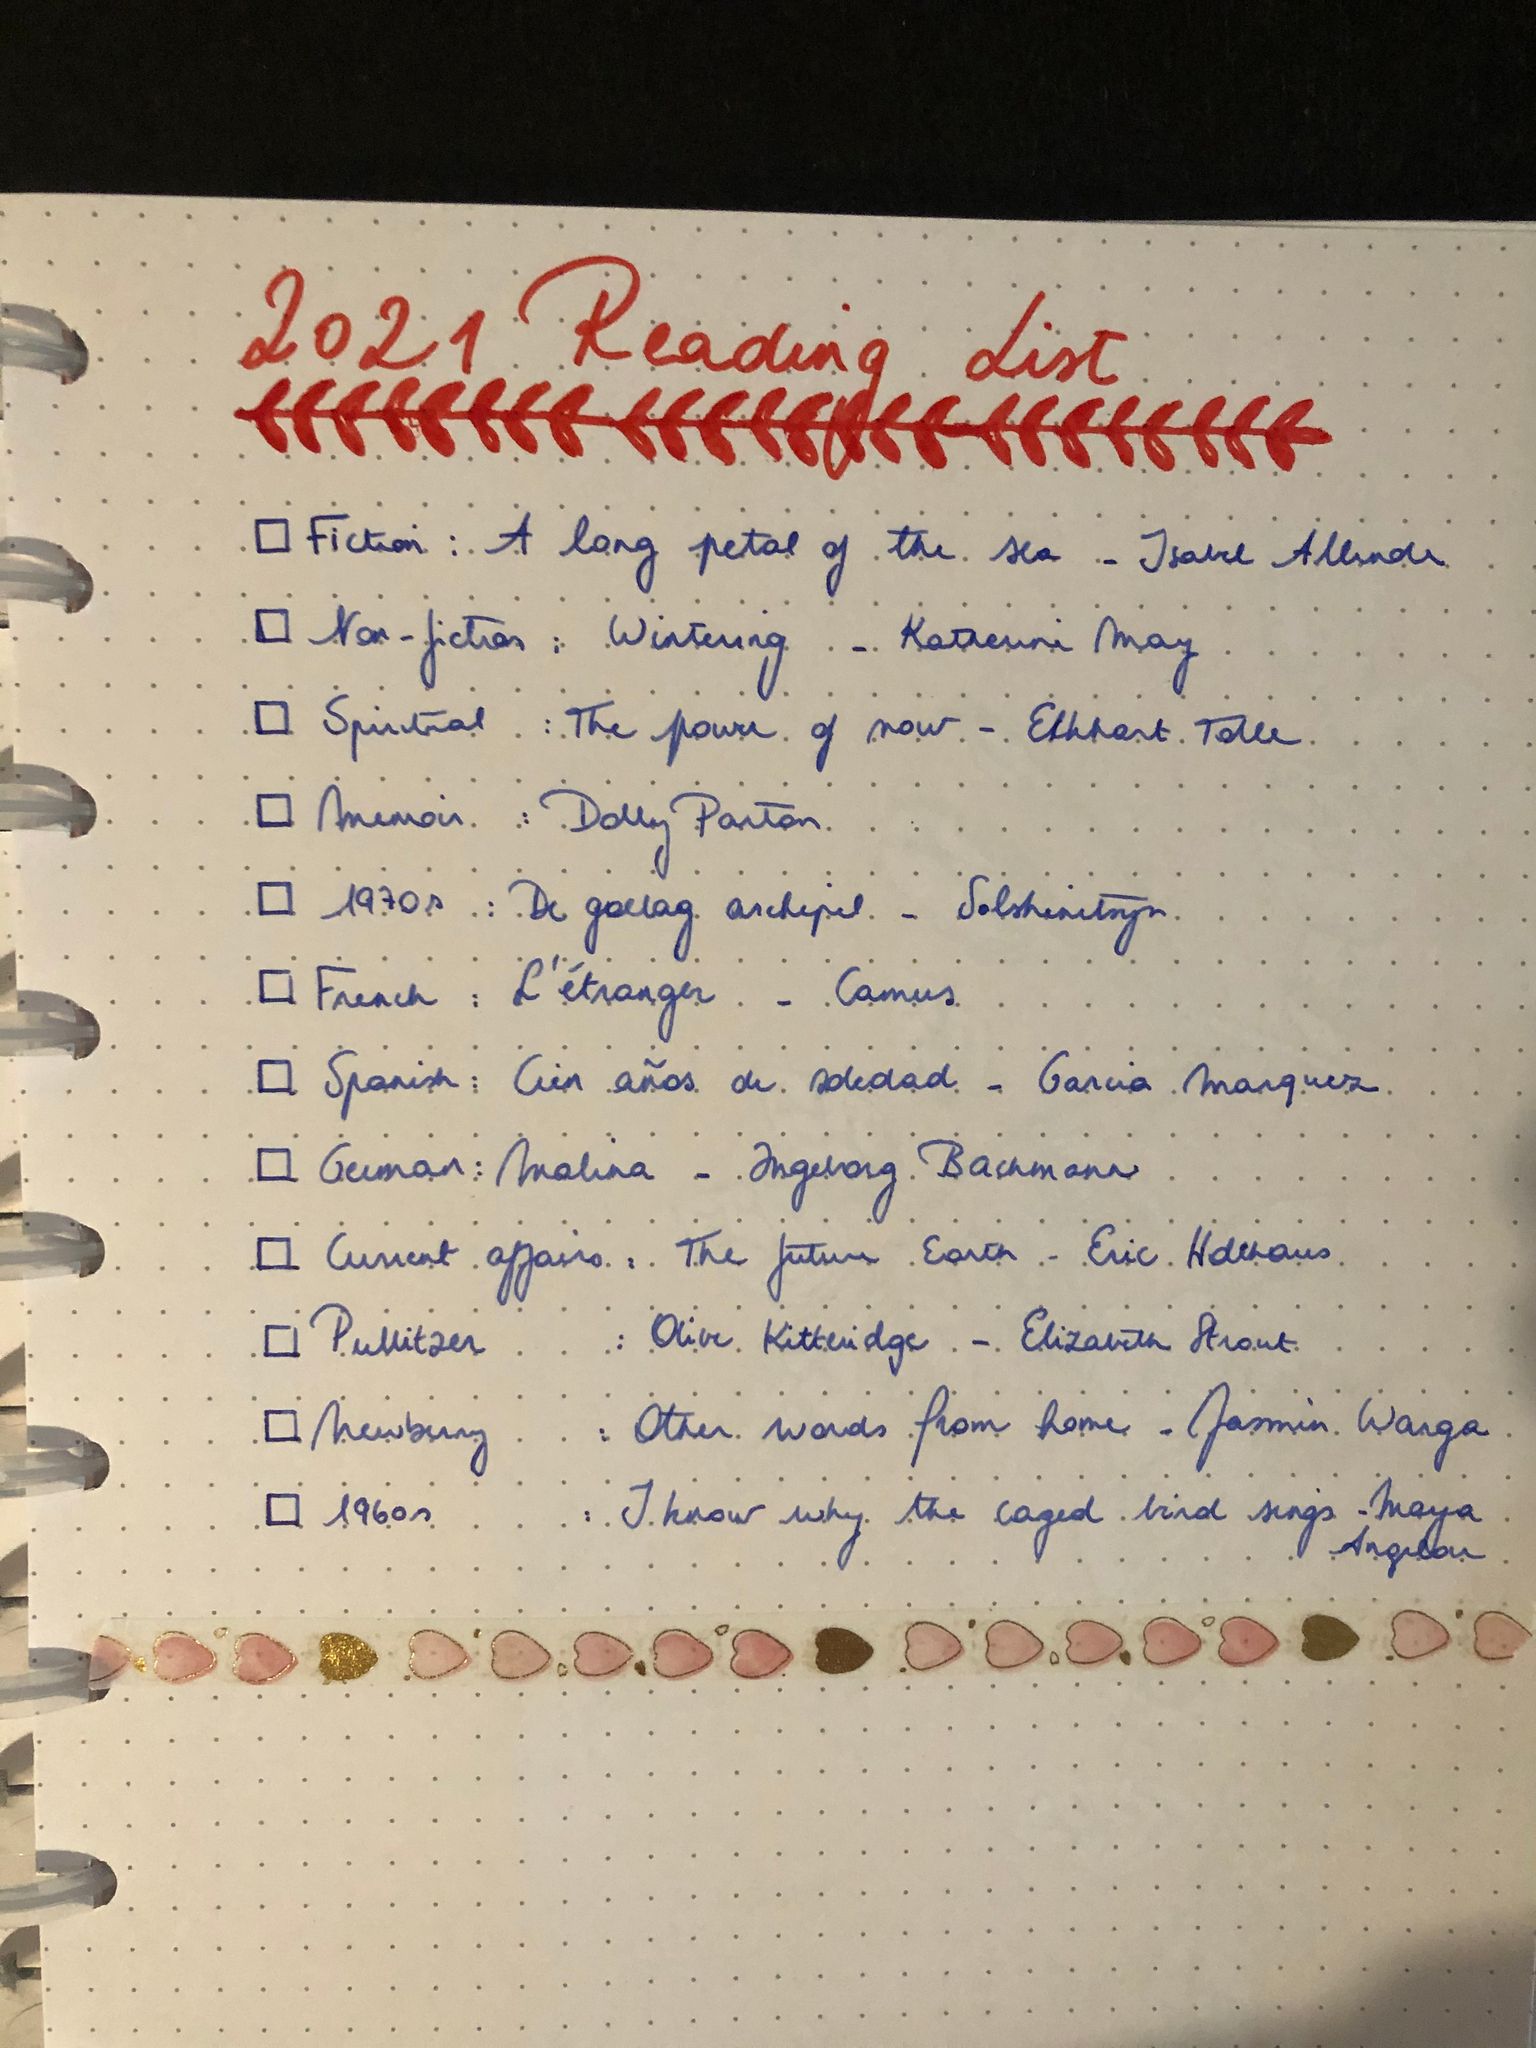 2021 Reading List
Fiction : A long petal of the sea - Isabel Allende
Non-fiction : Wintering - Katherine May
Spiritual : The power of now - Ekhhart Tolle
Memoir : Dolly Parton
1970s : De goelag archipel - Solshenitsyn
French : L'étranger - Camus
Spanish : Cien años de soledad - Garcia Marquez
German : Malina - Ingeborg Bachmann
Current affairs : The future Earth - Eric Holthaus
Pullitzer : Olive Kitteridge - Elizabeth Strout
Newberry : Other words from home - Jasmin Warga
1960s : I know why the caged bird sings - Maya
Angelou